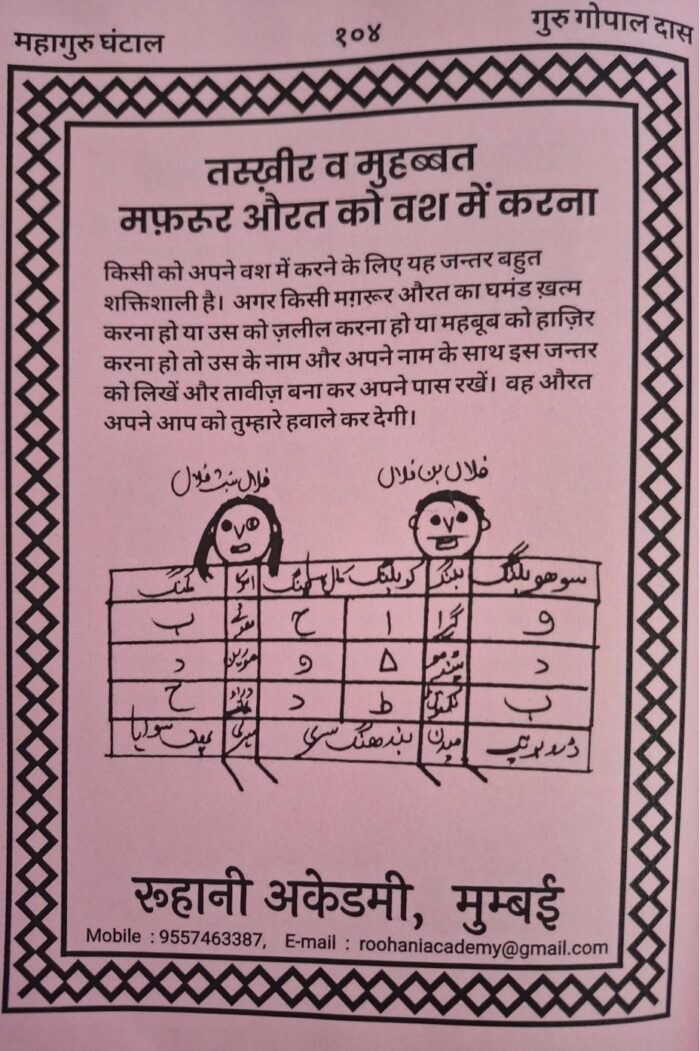 महागुरु घंटाल १०४ गुरु गोपाल दास
तस्ख़ीर व मुहब्बत
मफ़रूर औरत को वश में करना
किसी को अपने वश में करने के लिए यह जन्तर बहुत
शक्तिशाली है। अगर किसी मग़रूर औरत का घमंड ख़त्म
करना हो या उस को ज़लील करना हो या महबूब को हाज़िर
करना हो तो उस के नाम और अपने नाम के साथ इस जन्तर
को लिखें और तावीज़ बना कर अपने पास रखें। वह औरत
अपने आप को तुम्हारे हवाले कर देगी।
فلاں بن فلاں فلاں بنت فلاں
و ا ح ب
د ۵ و د
ب ط د ح
रूहानी अकेडमी, मुम्बई
Mobile : 9557463387, E-mail : roohaniacademy@gmail.com